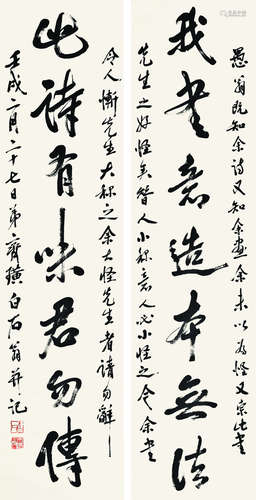 愚翁既知余诗又知余画余未以为怪又宗此书
我书意造本无法
先生之好怪矣昔人小称意人必小怪之今余书
令人惭先生大称之余大怪先生者请勿辞
此诗有味君勿传
壬戌二月二十七日弟齐璜白石翁并记